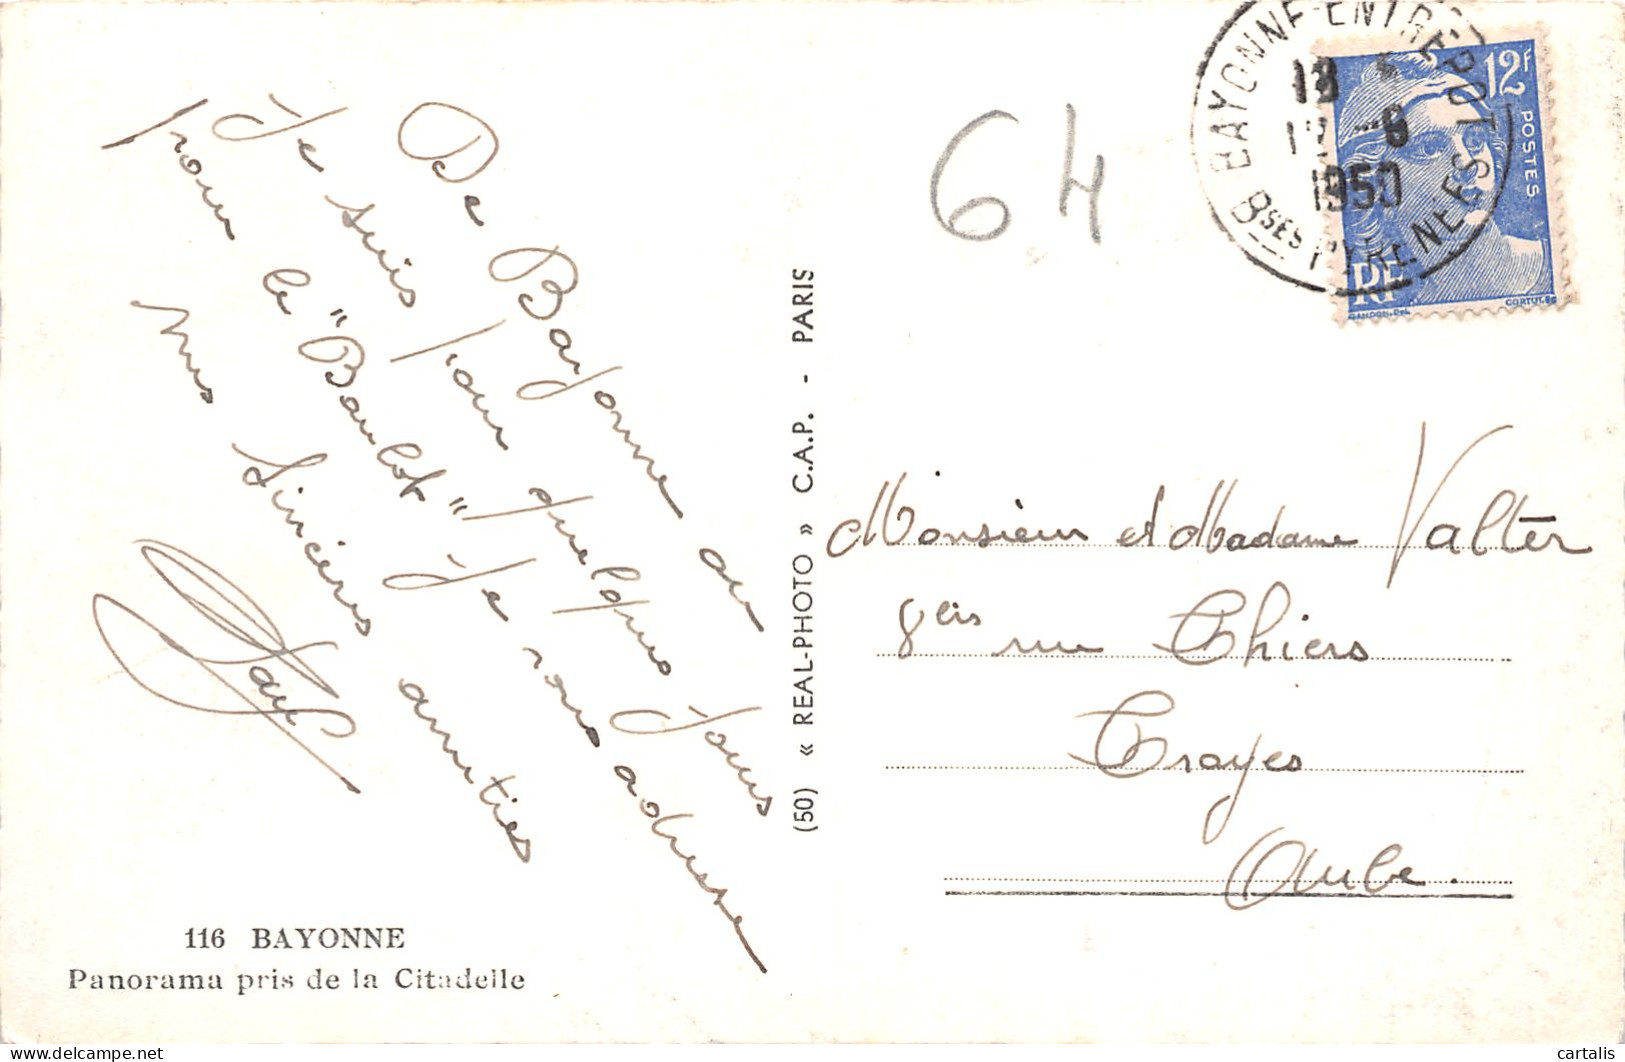 De Bayonne ou
Je suis pour quelques jours
pour le "Boulot" Je vous adresse
mes sincères amitiés
116 BAYONNE
Panorama pris de la Citadelle
(50) « REAL-PHOTO » C.A.P. - PARIS
64
BAYONNE-ENTREPOT
18
1950
Bses PYRENEES
12F
POSTES
RF
GANDON.DEL
CORTOT.SC
Monsieur et Madame Valter
8 rue Thiers
Troyes
Aube.
cartalis